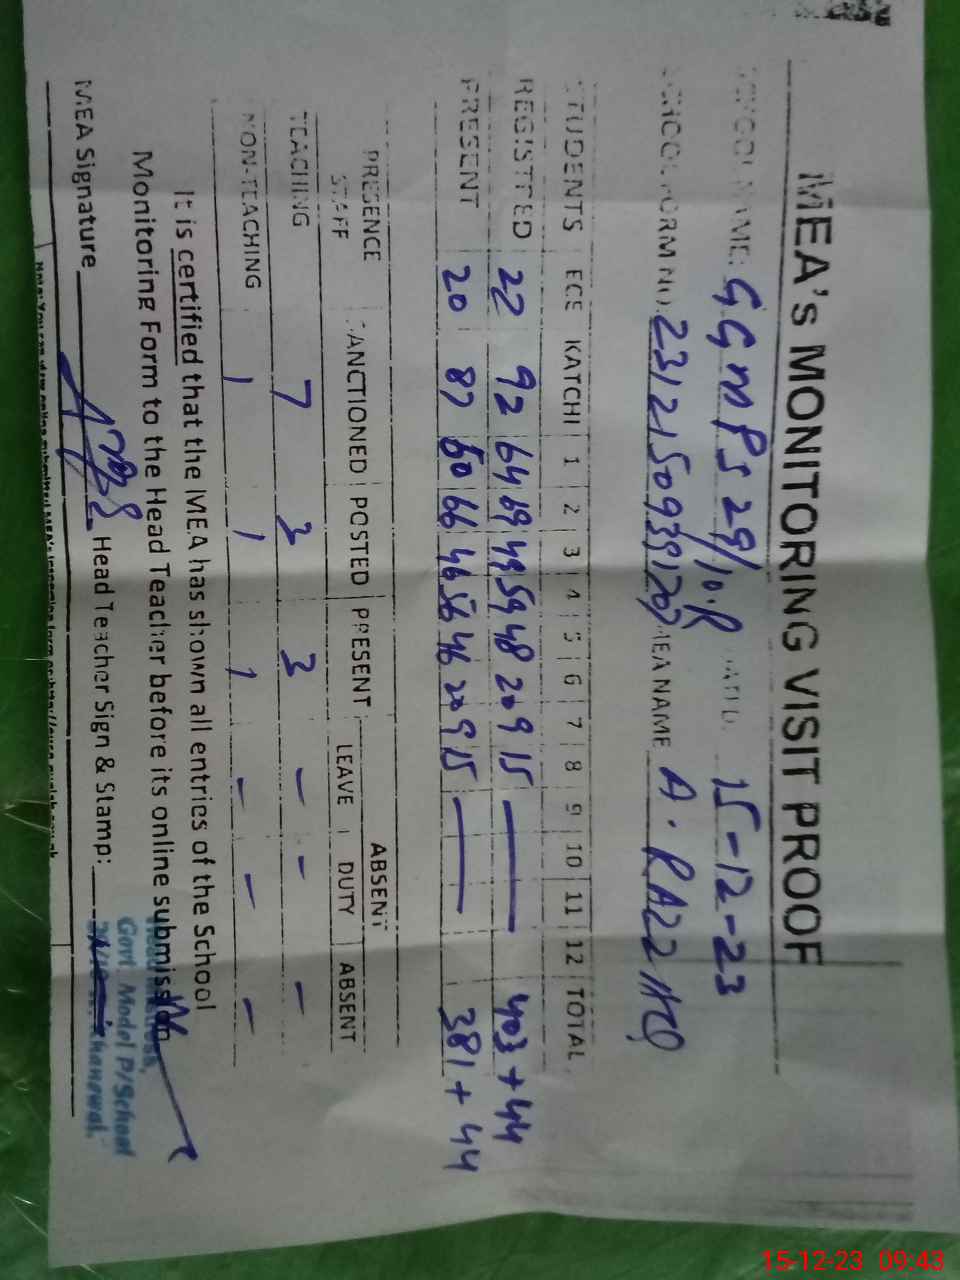 MEA's MONITORING VISIT PROOF
SCHOOL NAME: GGMPS 29/10.R DATED 15-12-23
SCHOOL FORM NO. MEA NAME A. RAZZAQ
STUDENTS ECE KATCHI 1 2 3 4 5 6 7 8 9 10 11 12 TOTAL
REGISTTED 22 92 64 69 49 59 48 20 9 15 — 403 + 44
PRESENT 20 87 60 66 46 56 46 20 9 15 — 381 + 44
PRESENCE ABSENT
STAFF SANCTIONED POSTED PRESENT LEAVE DUTY ABSENT
TEACHING 7 3 3 – – –
NON-TEACHING 1 1 1 – – –
It is certified that the MEA has shown all entries of the School
Monitoring Form to the Head Teacher before its online submission
MEA Signature Head Teacher Sign & Stamp:
Govt. Model P/School
Khanewal.
15-12-23 09:43